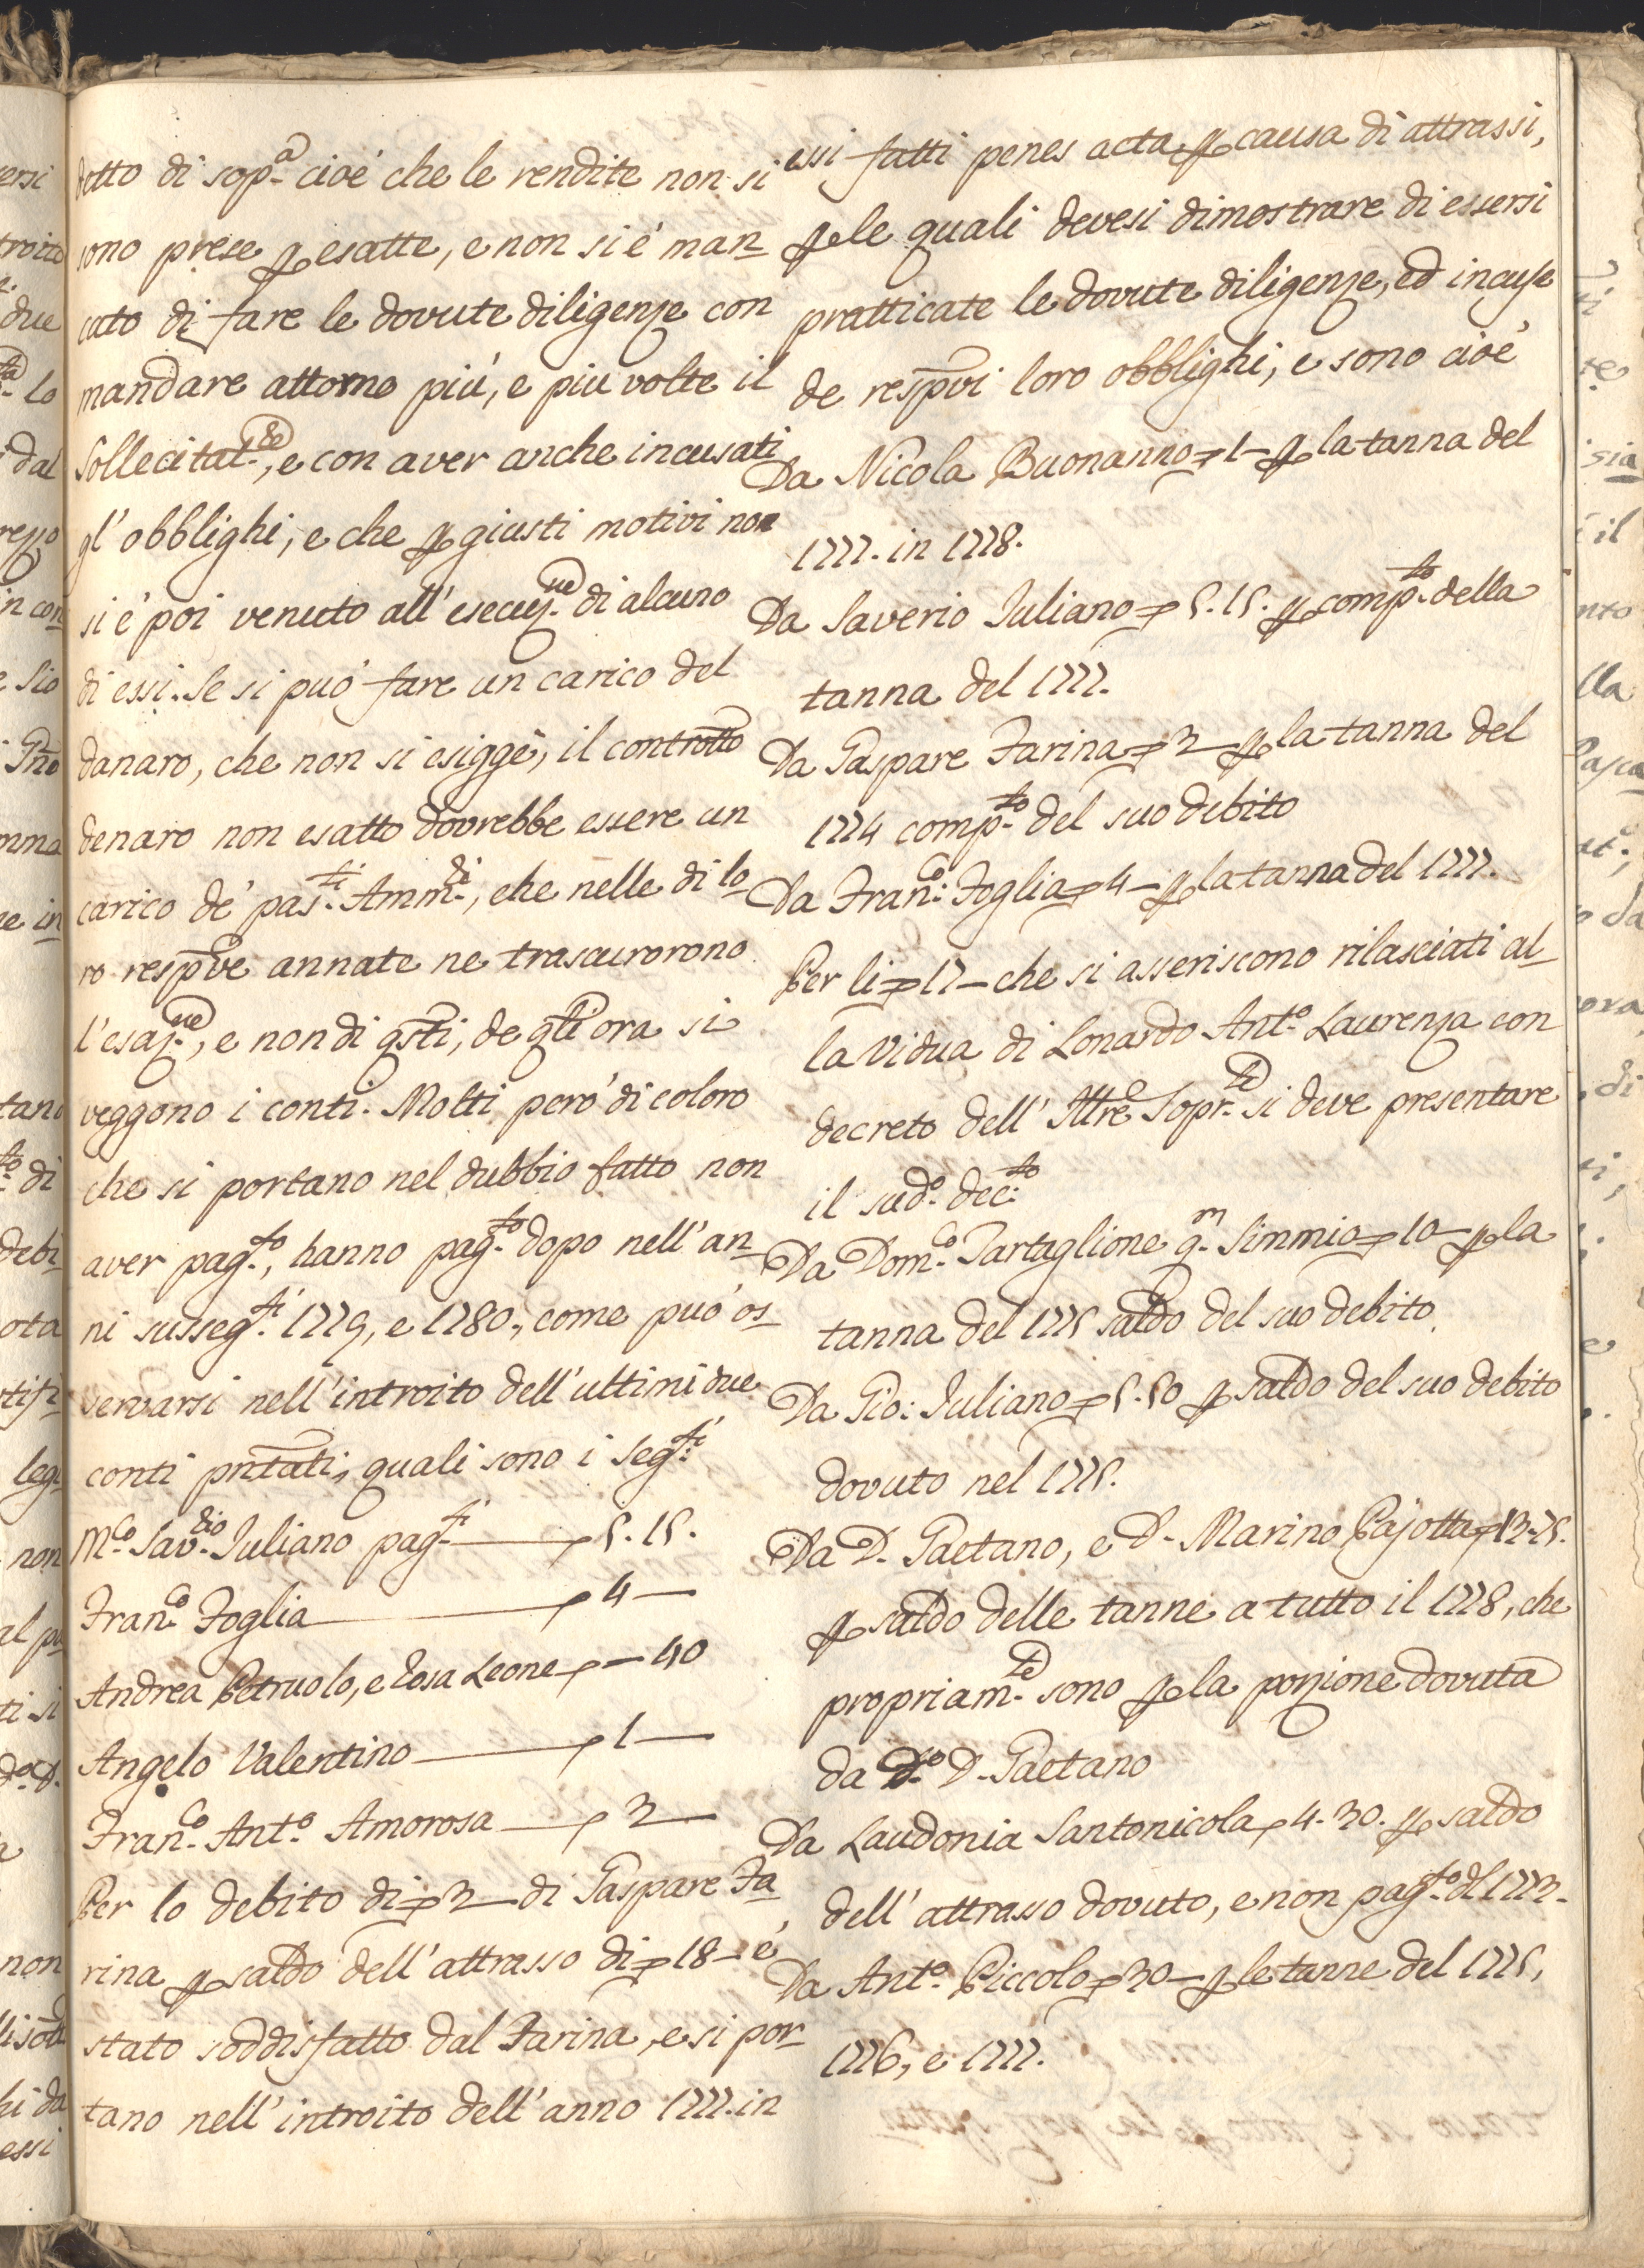 detto di sop.a cioè che le rendite non si
sono prese p esatte, e non si è man
cato di fare le dovute diligenze con
mandare attorno più, e più volte il
Sollecitat.re, e con aver anche incusati
gl'obblighi, e che p giusti motivi non
si è poi venuto all'esecuz.ne di alcuno
di essi. Se si può fare un carico del
danaro, che non si esiggè, il controtto
denaro non esatto dovrebbe essere un
carico de' pas.ti Amm.ri, che nelle di lo
ro respve annate ne trascurorono
l'esaz.ne, e non di qsti, de qli ora si
veggono i conti. Molti però di coloro
che si portano nel dubbio fatto non
aver pag.to, hanno pag.to dopo nell'an
ni susseg.ti 1779, e 1780, come può os
servarsi nell'introito dell'ultimi due
conti pntati, quali sono i seg.ti
M.co Sav.rio Iuliano pag.ti 5.15.
Fran.co Foglia 4—
Andrea Petruolo, e Rosa Leone — 40
Angelo Valentino 1—
Fran.co Ant.o Amorosa 2—
Per lo debito di 2— di Gaspare Fa
rina p saldo dell'attrasso di 18— è
stato soddisfatto dal Farina, e si por
tano nell'introito dell'anno 1777. in
essi fatti penes acta p causa di attrassi,
p le quali devesi dimostrare di essersi
pratticate le dovute diligenze, ed incuse
de respvi loro obblighi, e sono cioè
Da Nicola Buonanno 1— p la tanna del
1777. in 1778.
Da Saverio Iuliano 5.15. p comp.to della
tanna del 1777.
Da Gaspare Farina 2— p la tanna del
1774 comp.to del suo debito
Da Fran.co Foglia 4— p la tanna del 1777.
Per li 17— che si asseriscono rilasciati al
la Vidua di Lonardo Ant.o Laurenza con
decreto dell'Illre Sopr.te si deve presentare
il sud.o dec.to
Da Dom.co Tartaglione q.m Simmio 10— p la
tanna del 1775 saldo del suo debito
Da Gio: Iuliano 5.50 p saldo del suo debito
dovuto nel 1775.
Da D. Gaetano, e D. Marino Pajotta 12-75.
p saldo delle tanne a tutto il 1778, che
propriam.te sono p la porzione dovuta
da d.o D. Gaetano
Da Laudonia Santonicola 4.30. p saldo
dell'attrasso dovuto, e non pag.to dl 1772.
Da Ant.o Piccolo 30— p le tanne del 1775,
1776, e 1777.